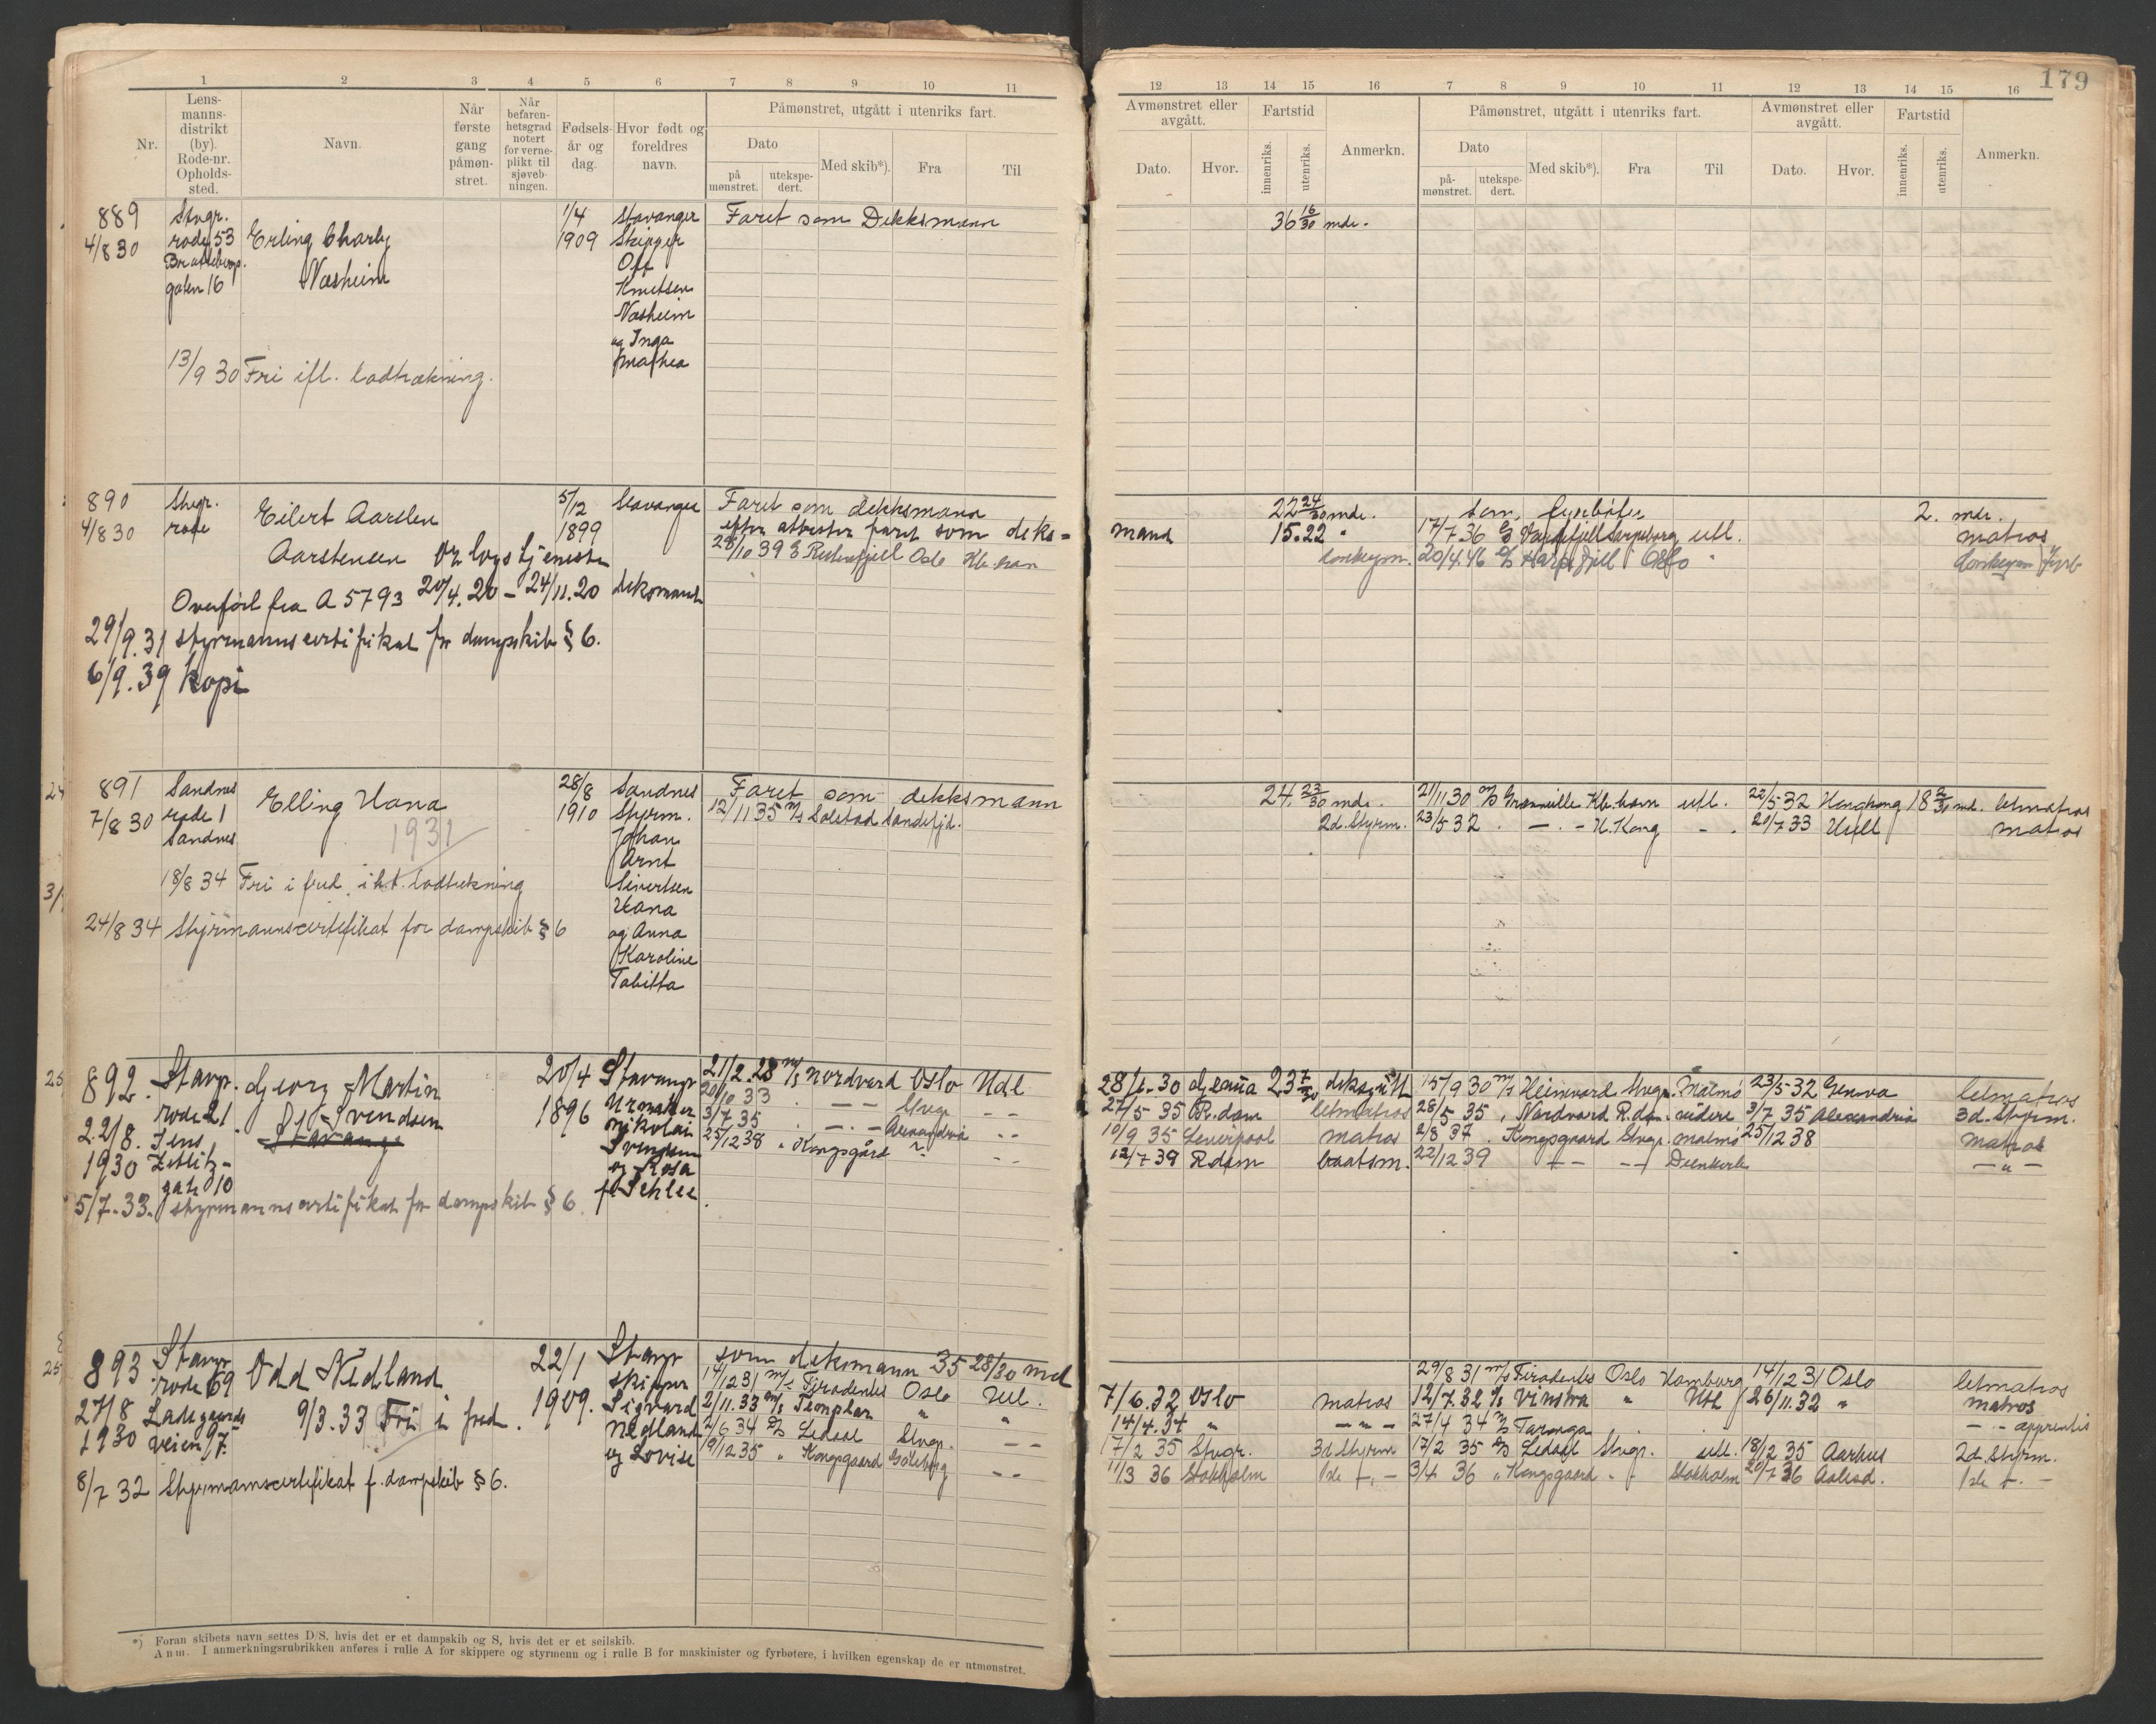 179
1 2 3 4 5 6 7 8 9 10 11
Nr.
Lens-
manns-
distrikt
(by).
Rode-nr.
Opholds-
sted.
Navn.
Når
første
gang
påmøn-
stret.
Når
befaren-
hetsgrad
notert
for verne-
plikt til
sjøveb-
ningen.
Fødsels-
år og
dag.
Hvor født og
foreldres
navn.
Påmønstret, utgått i utenriks fart.
Dato
på
mønstret.
utekspe-
dert.
Med skib*).
Fra
Til
12 13 14 15 16 7 8 9 10 11 12 13 14 15 16
Avmønstret eller
avgått.
Dato.
Hvor.
Fartstid
innenriks.
utenriks.
Anmerkn.
Påmønstret, utgått i utenriks fart.
Dato
på-
mønstret.
utekspe-
dert.
Med skib*).
Fra
Til
Avmønstret eller
avgått.
Dato.
Hvor.
Fartstid
innenriks.
utenriks.
Anmerkn.
889
4/8 30
Stvgr.
rode 53
gaten 16
Erling Charly
Næsheim
1/4
1909
Stavanger
Skipper
Knutsen
Næsheim
og Inga
Mathea
Faret som Dekksmann
36 16/30 mdr.
13/9 30 Fri ifl. lodtrækning.
890
4/8 30
Stvgr.
rode
Eilert Aarslen
Aarstensen
5/12
1899
Stavanger
Faret som dekksmann
efter attester faret som deks=
mand
28/10 39 Oslo Kbhavn
22 24/30 mdr.
15.22 "
17/7.36 Sarpsborg utl.
2. mdr.
matros
20/4.46 Oslo "
Overført fra A 5793 20/4.20 - 24/11.20 deksmand
29/9.31 styrmannscertifikat for dampskib § 6.
6/9.39 Kopi
891
7/8 30
Sandnes
rode 1
Sandnes
Elling Hana
1931
28/8
1910
Sandnes
Styrm.
Johan
Arnt
Sivertsen
Hana
og Anna
Karoline
Tabitta
Faret som dekksmann
12/11 35 M/s Solstad Sandefjd.
24. 23/30 mdr.
2d. Styrm.
21/11 30 M/S Granville Kbhavn utl. 22/5 32 Hongkong 18 2/30 md. letmatros
23/5 32 . — . - H.Kong - . 20/7 33 Hull matros
18/8 34 Fri i fred. i h.t. lodtrekning
24/8 34 Styrmannscertifikat for dampskib § 6
892.
22/8.
1930
Stavgr.
rode 21.
Jens
Zetlitz-
gate 10
Georg Martin
Svendsen
20/4
1896
Stavanger
Urmaker
Nikolai
Svendsen
og Rosa
f. Schlee
21/2.28 M/s Nordvard Oslo Utl
20/10 33 . — — Stvgr. - -
3/7 35 . — . — Alexandria - -
25/12 38 " Kongsgård - -
28/6.30 Genua 23 7/30
27/5 35 R.dam letmatros
10/9 35 Liverpool matros
12/7 39 R.dam baatsm.
15/9 30 M/s Heimvard Stvgr. Malmö 23/5 32 Genova letmatros
28/5 35 " Nordvard R.dam videre 3/7 35 Alexandria 3d. Styrm.
2/8 37 . Kongsgaard Stvgr. Malmö 25/12 38 matros
22/12 39 — — Dunkerk — " —
5/7.33. styrmannscertifikat for dampskib § 6.
893
27/8
1930
Stavgr
rode 69
Ladegaards
veien 97.
Odd Nedland
9/3.33 Fri i fred.
22/1
1909.
Stavgr
skipper
Sigvard
Nedland
og Lovise
som deksmann 35 28/30 md
14/12 31 M/s Tiradentes Oslo Utl.
2/11.33 M/s Templar " "
2/6 34 Ledaal Stvgr. - -
19/12 35 " Kongsgaard Göteborg - -
29/8 31 M/s Tiradentes Oslo Hamburg 14/12 31 Oslo letmatros
7/6.32 Oslo matros 12/7.32 Vinstra " Utl 26/11.32 " matros
14/4.34 " — " — 27/4 34 M/s Taronga apprentis
17/2 35 Stvgr. 3d Styrm 17/2 35 Ledaal Stvgr. utl. 18/12 35 Aarhus 2d. Styrm.
11/3 36 Stokholm 1ste — " — 3/4 36 " Kongsgaard Stokholm 20/7 36 Aalesd. 1ste — " —
8/7 32 Styrmannscertifikat f. dampskib § 6.
*) Foran skibets navn settes D/S, hvis det er et dampskib og S, hvis det er et seilskib.
Anm. I anmerkningsrubrikken anføres i rulle A for skippere og styrmenn og i rulle B for maskinister og fyrbøtere, i hvilken egenskap de er utmønstret.